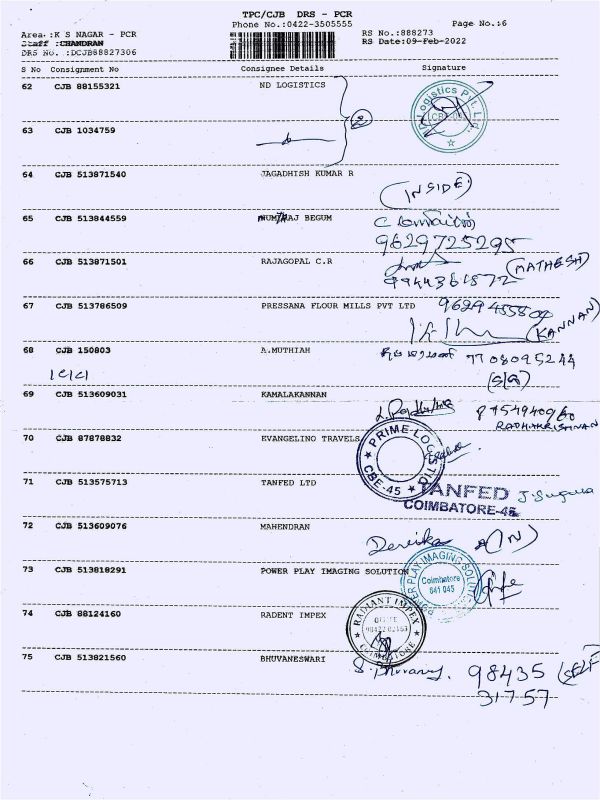 TPC/CJB DRS - PCR
Phone No.:0422-3505555
Page No.:6
Area :K S NAGAR - PCR
RS No.:888273
Staff :CHANDRAN
RS Date:09-Feb-2022
DRS No. :DCJB88827306
S No Consignment No Consignee Details Signature
62 CJB 88155321 ND LOGISTICS
Logistics Pvt. Ltd.
2
63 CJB 1034759
64 CJB 513871540 JAGADHISH KUMAR R
(INSIDE)
65 CJB 513844559 MUMTHAJ BEGUM
9629725295
66 CJB 513871501 RAJAGOPAL C.R
(MATHESH)
9944361872
67 CJB 513786509 PRESSANA FLOUR MILLS PVT LTD
(KANNAN)
68 CJB 150803 A.MUTHIAH
7708095244
69 CJB 513609031 KAMALAKANNAN
RADHAKRISHNAN
70 CJB 87878832 EVANGELINO TRAVELS
CBE-45
71 CJB 513575713 TANFED LTD
TANFED
COIMBATORE-45
J. Suguna
72 CJB 513609076 MAHENDRAN
(IN)
73 CJB 513818291 POWER PLAY IMAGING SOLUTION
POWER PLAY IMAGING SOLUTION
Coimbatore
641 045
74 CJB 88124160 RADENT IMPEX
RADIANT IMPEX
COIMBATORE
75 CJB 513821560 BHUVANESWARI
98435
(SELF
31757